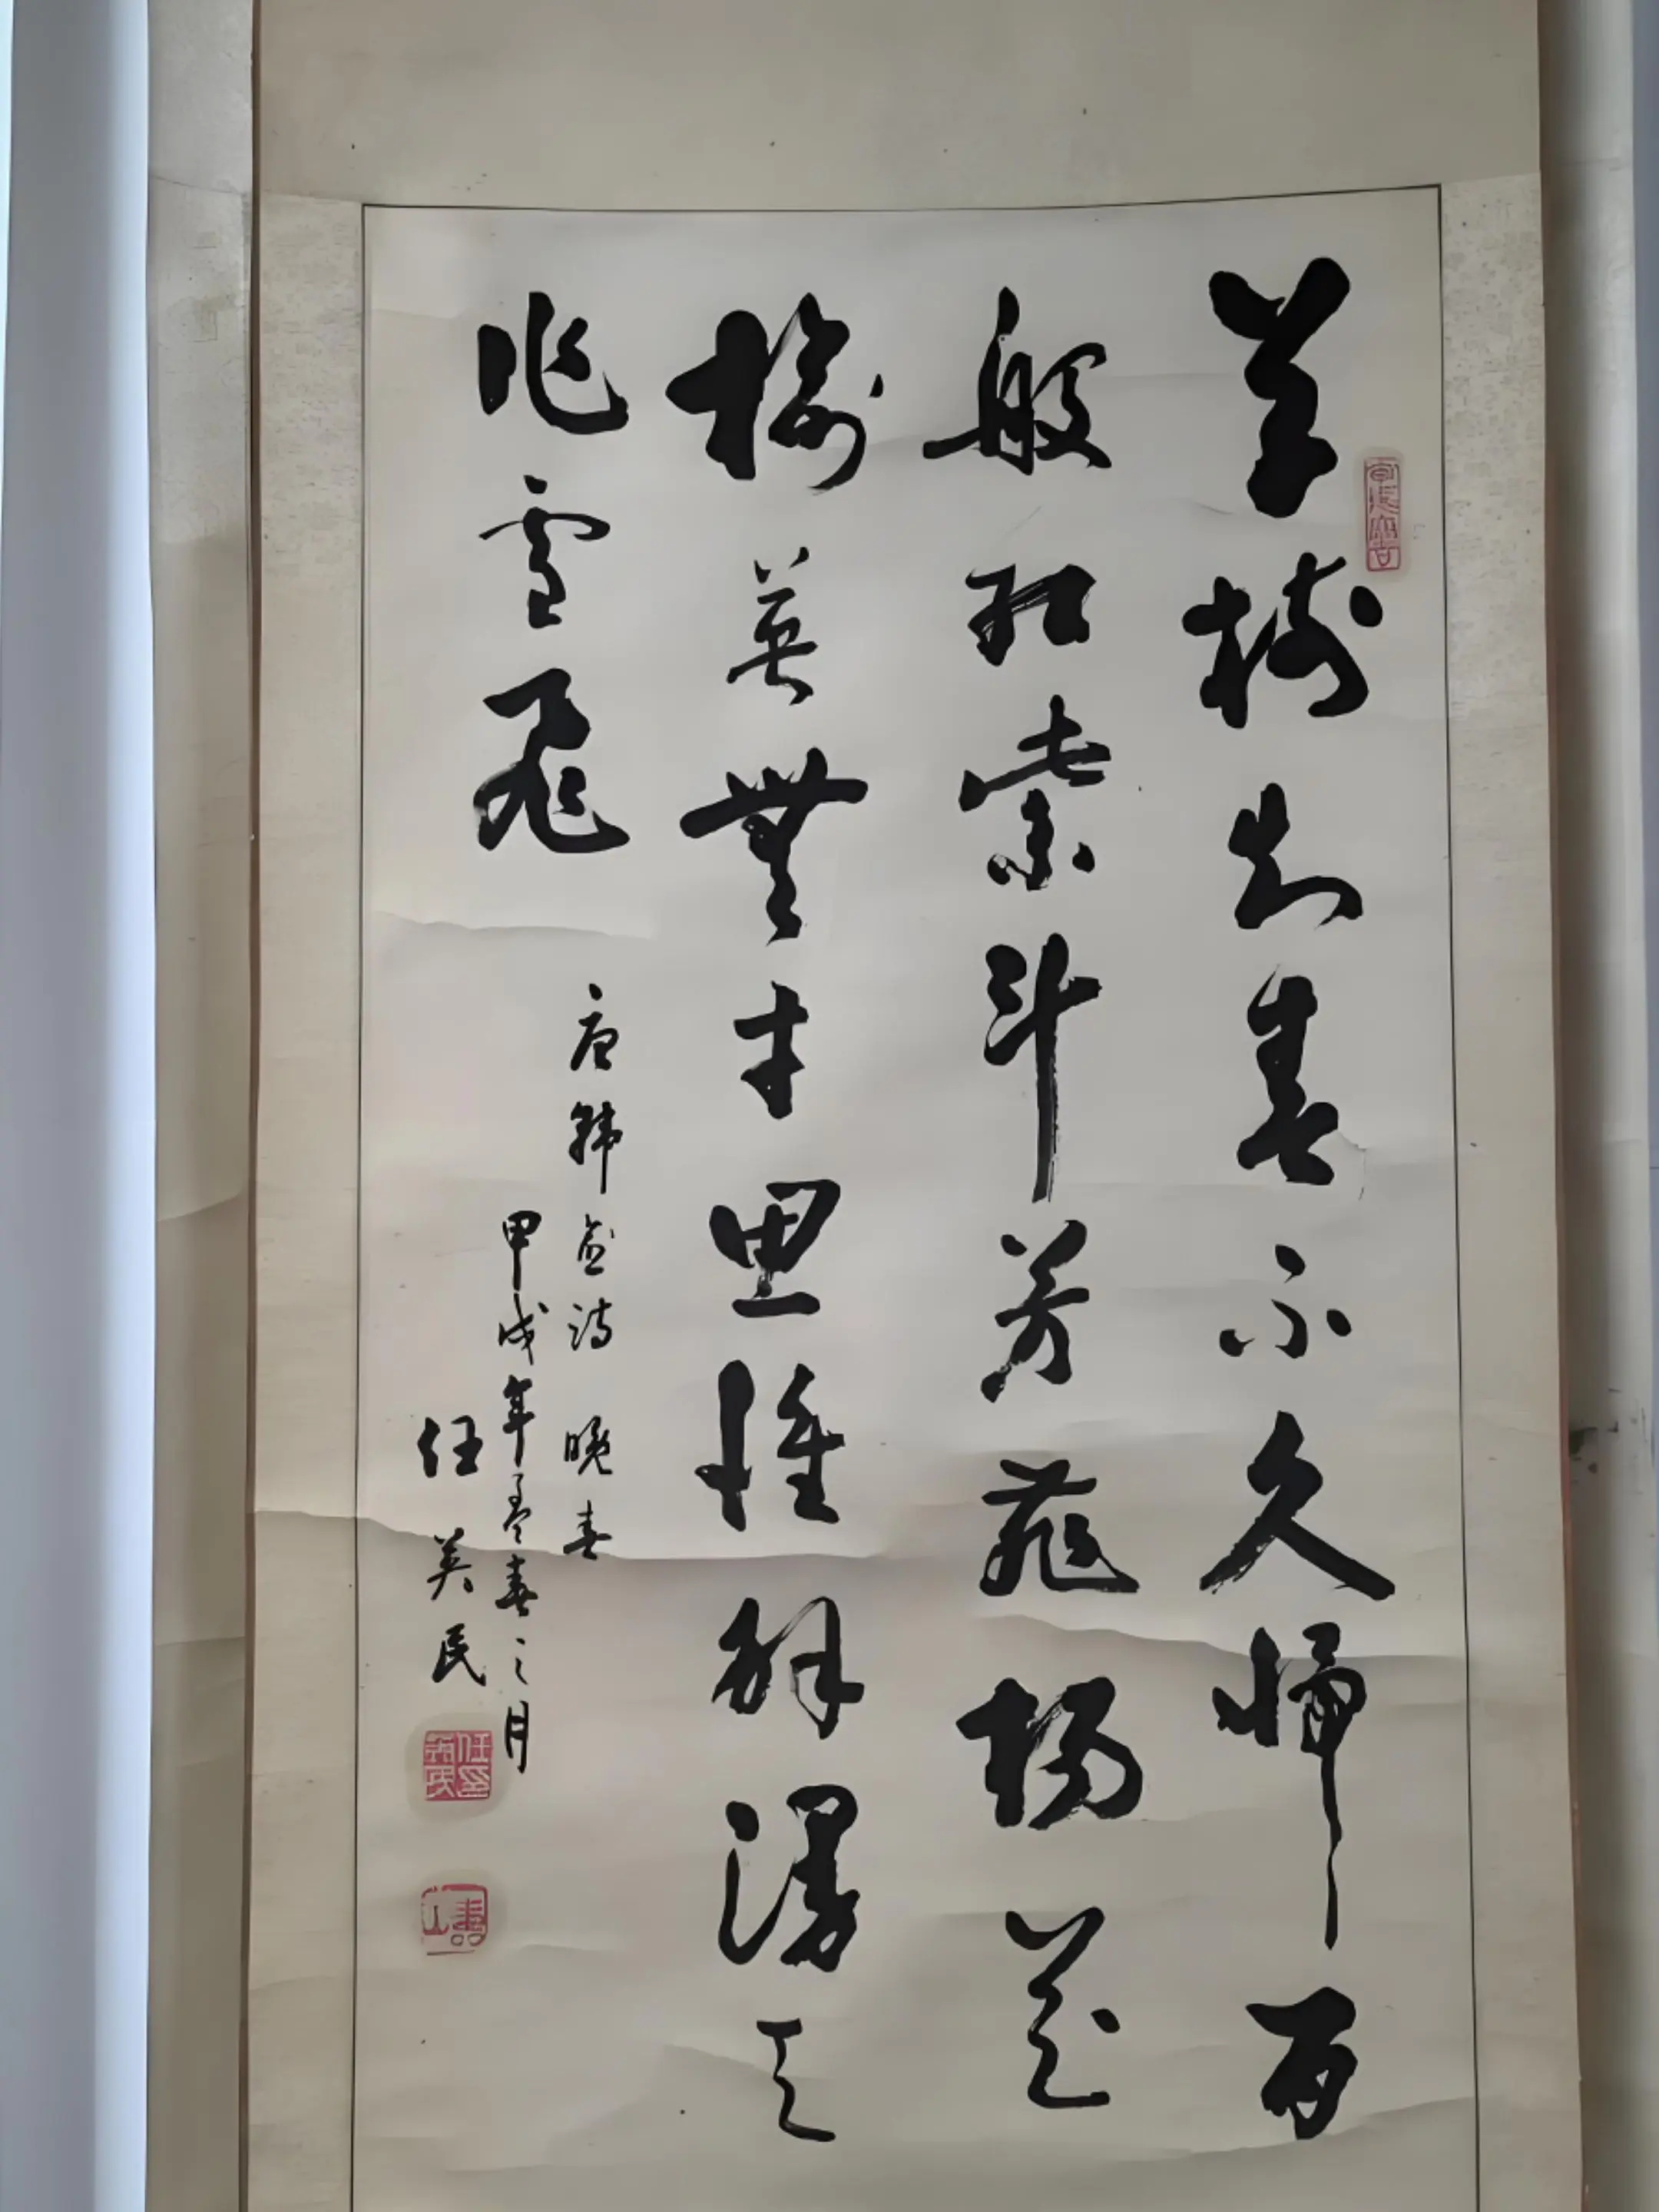 草樹知春不久歸百
般紅紫斗芳菲楊花
榆莢無才思惟解漫天
作雪飛
唐韩愈诗 晚春
甲戌年孟春之月
任英民